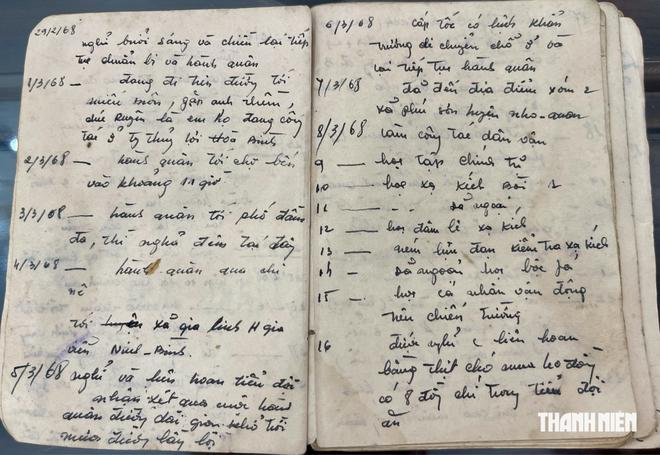 29/2/68
nghỉ buổi sáng và chiều lại tiếp
tục chuẩn bị và hành quân
1/3/68 — đang đi trên đường tới
miếu môn, gặp anh Nhiễm,
chú Ruyện là em Ro đang công
tác ở ty thủy lợi Hòa Bình
2/3/68 — hành quân tới chợ bến
vào khoảng 11 giờ
3/3/68 — hành quân tới phố đầm
đa, thì nghỉ đêm tại đây
4/3/68 — hành quân qua chi
nê
tới xã gia lính H gia
viễn Ninh-Bình.
5/3/68 nghỉ và liên hoan tiểu đội
nhận xét qua cuộc hành
quân đường dài gian khổ trời
mưa đường lầy lội
6/3/68 cấp tốc có lệnh khẩn
trương di chuyển chỗ ở và
lại tiếp tục hành quân
7/3/68 đã đến địa điểm xóm 2
xã phú sơn huyện nho-quan
8/3/68 làm công tác dân vận
9 — học tập chính trị
10 — học xạ kích bài 2
11 — dã ngoại,
12 — học đâm lê xạ kích
13 — ném lựu đạn kiểm tra xạ kích
14 — dã ngoại học bộc fá
15 — học cá nhân vận động
trên chiến trường
16 được nghỉ liên hoan
bằng thịt chó mua đồng
có 8 đồng chí trong tiểu đội
ăn
THANH NIÊN